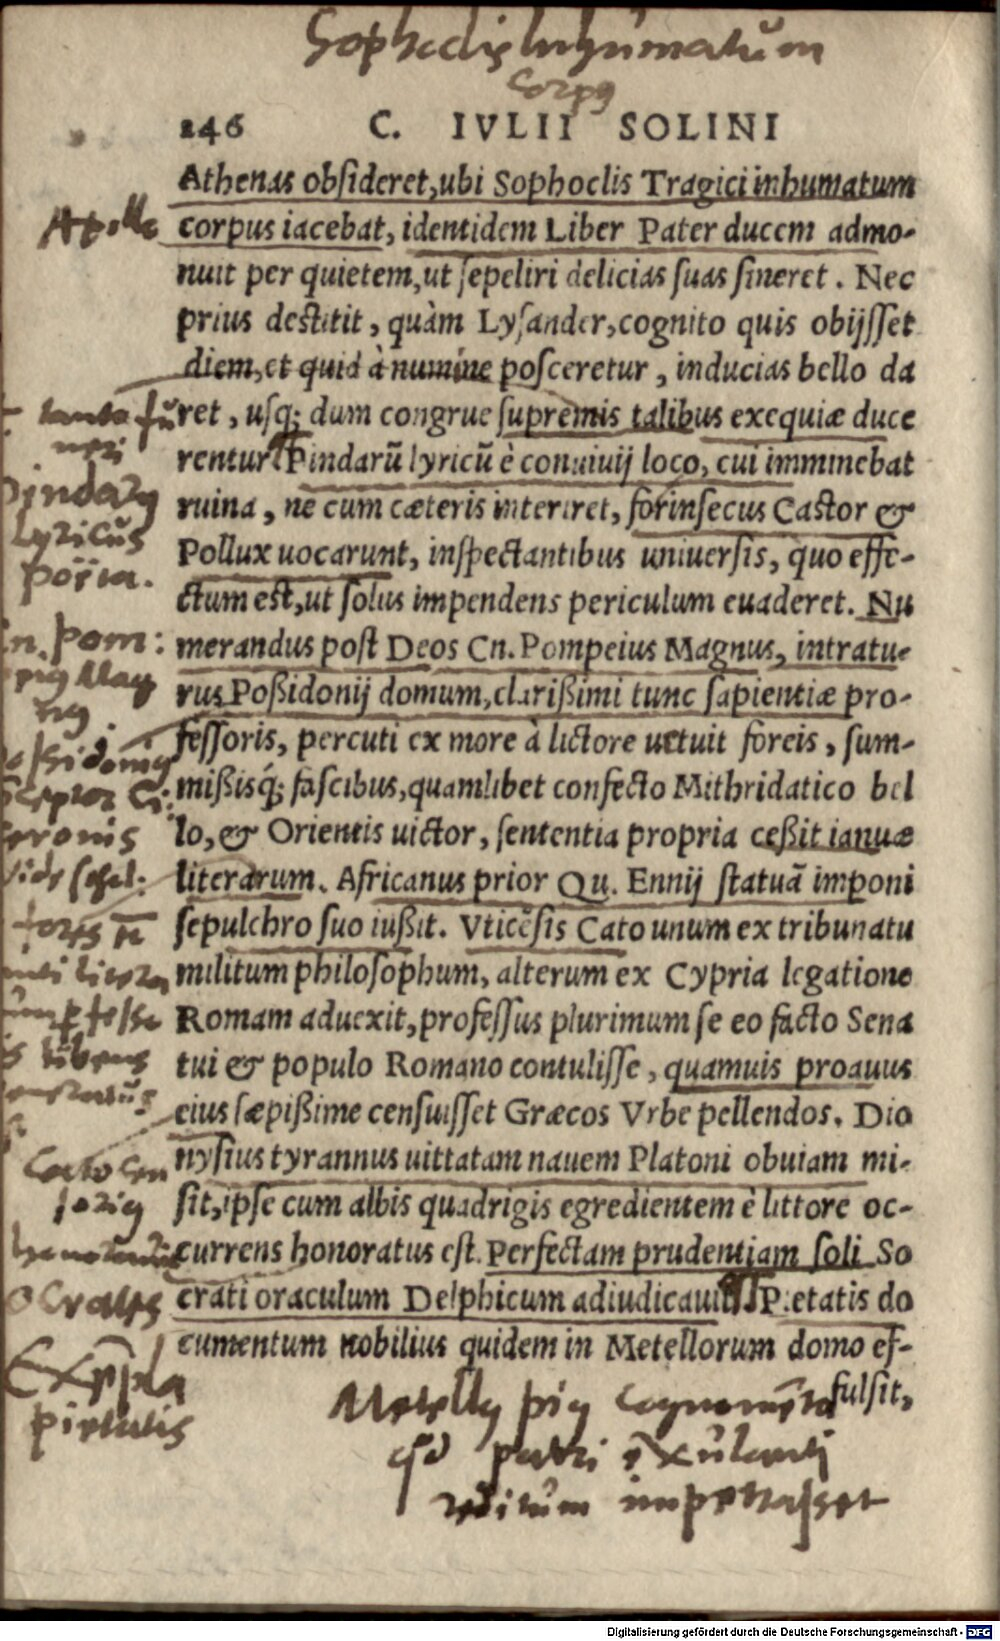 Sophoclis inhumatum
Corpꝰ
246 C. IVLII SOLINI
Athenas obsideret, ubi Sophoclis Tragici inhumatum
corpus iacebat, identidem Liber Pater ducem admo-
nuit per quietem, ut sepeliri delicias suas sineret. Nec
prius destitit, quàm Lysander, cognito quis obijsset
diem, et quid à numine posceretur, inducias bello da
ret, usq; dum congrue supremis talibus exequiæ duce
rentur. Pindarū lyricū è conuiuij loco, cui imminebat
ruina, ne cum cæteris interiret, forinsecus Castor &
Pollux uocarunt, inspectantibus uniuersis, quo effe-
ctum est, ut solus impendens periculum euaderet. Nu
merandus post Deos Cn. Pompeius Magnus, intratu-
rus Poßidonij domum, clarißimi tunc sapientiæ pro-
fessoris, percuti ex more à lictore uetuit foreis, sum-
mißisq́; fascibus, quamlibet confecto Mithridatico bel
lo, & Orientis uictor, sententia propria ceßit ianuæ
literarum. Africanus prior Qu. Ennij statuā imponi
sepulchro suo iußit. Vticēsis Cato unum ex tribunatu
militum philosophum, alterum ex Cypria legatione
Romam aduexit, professus plurimum se eo facto Sena
tui & populo Romano contulisse, quamuis proauus
eius sæpißime censuisset Græcos Vrbe pellendos. Dio
nysius tyrannus uittatam nauem Platoni obuiam mi-
sit, ipse cum albis quadrigis egredientem è littore oc-
currens honoratus est. Perfectam prudentiam soli So
crati oraculum Delphicum adiudicauit. Pietatis do
cumentum nobilius quidem in Metellorum domo ef-
fulsit,
Pindarꝰ
Lyricus
Cato Cen
soriꝰ
Exēpla
pietatis
Metellꝰ piꝰ cognomēto
qd patri exulanti
reditum impetrasset
Digitalisierung gefördert durch die Deutsche Forschungsgemeinschaft - DFG